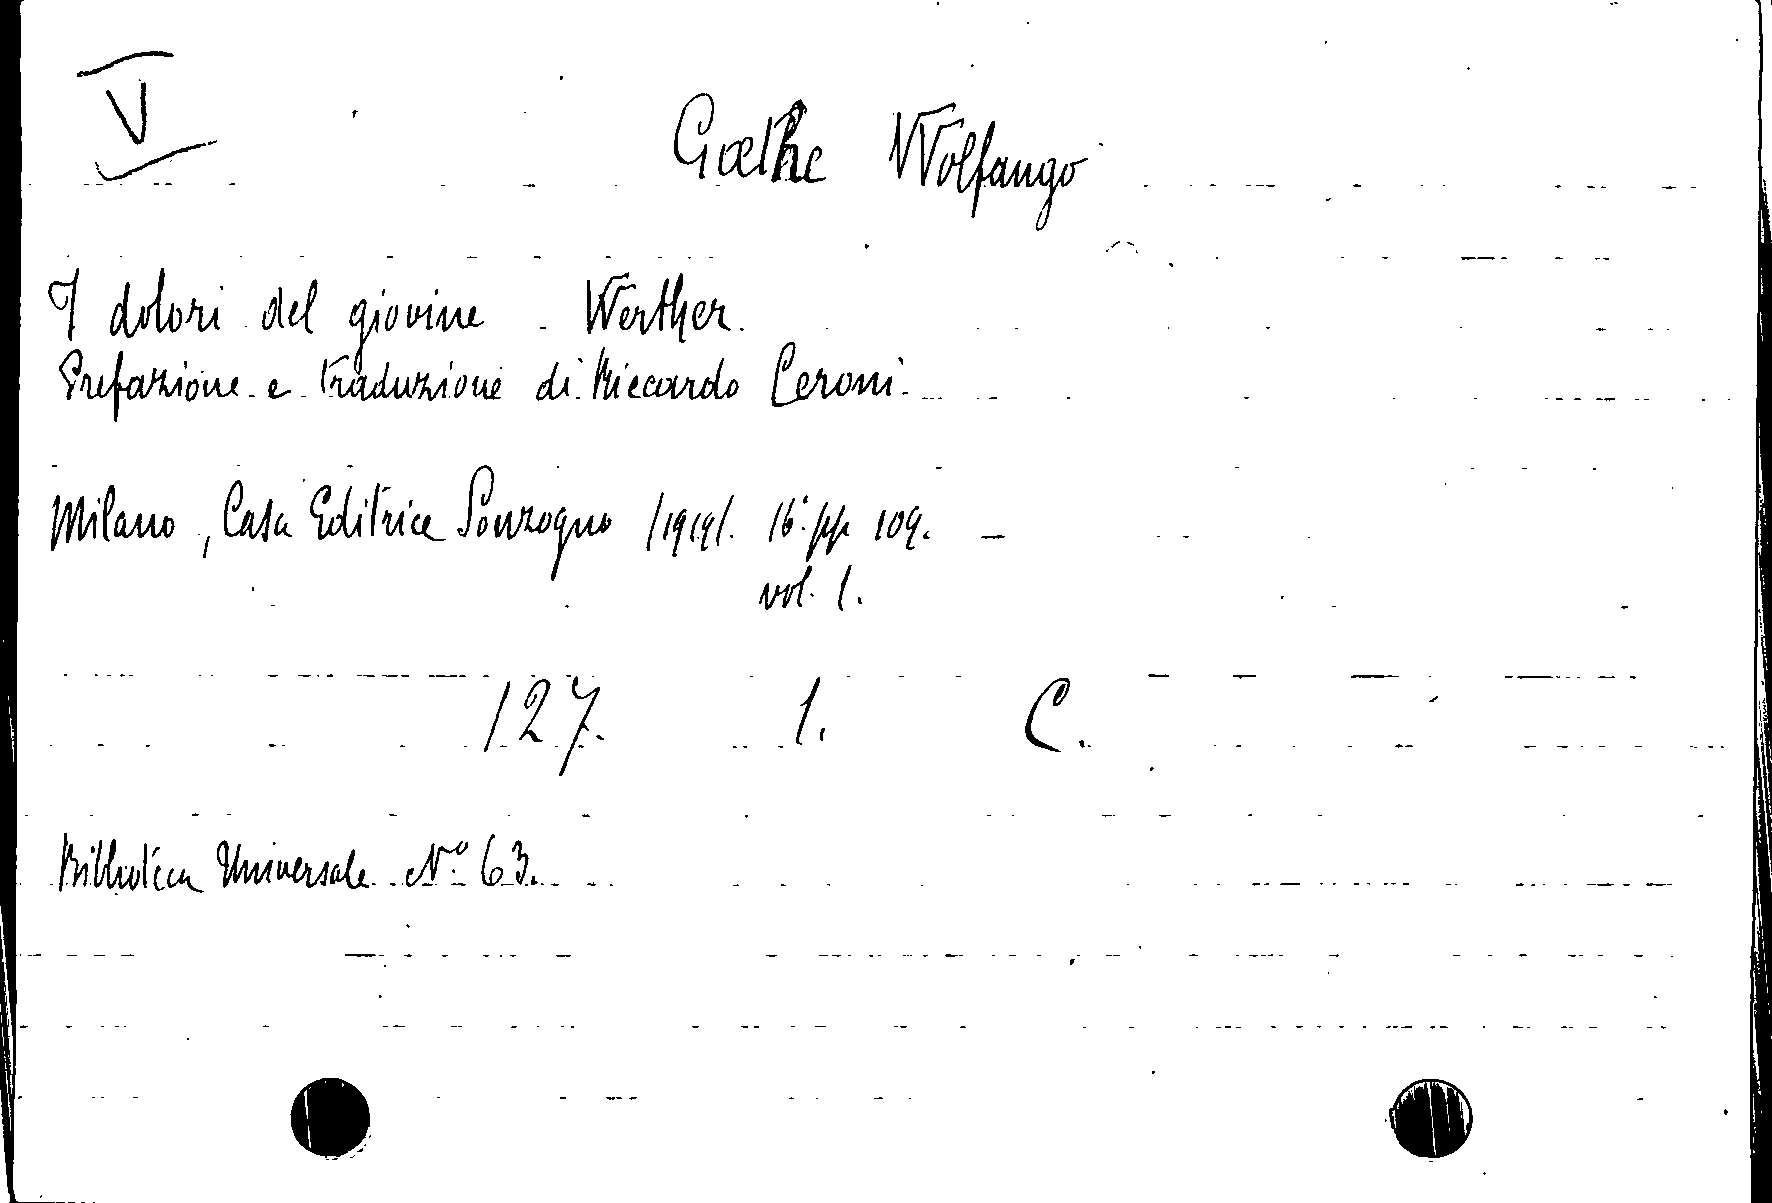 V
Goethe Wolfango
I dolori del giovine Werther.
Prefazione e traduzione di Riccardo Ceroni.
Milano, Casa Editrice Sonzogno /1919/. 16° pp 109.
vol. 1.
127. 1. C.
Biblioteca Universale N° 63.